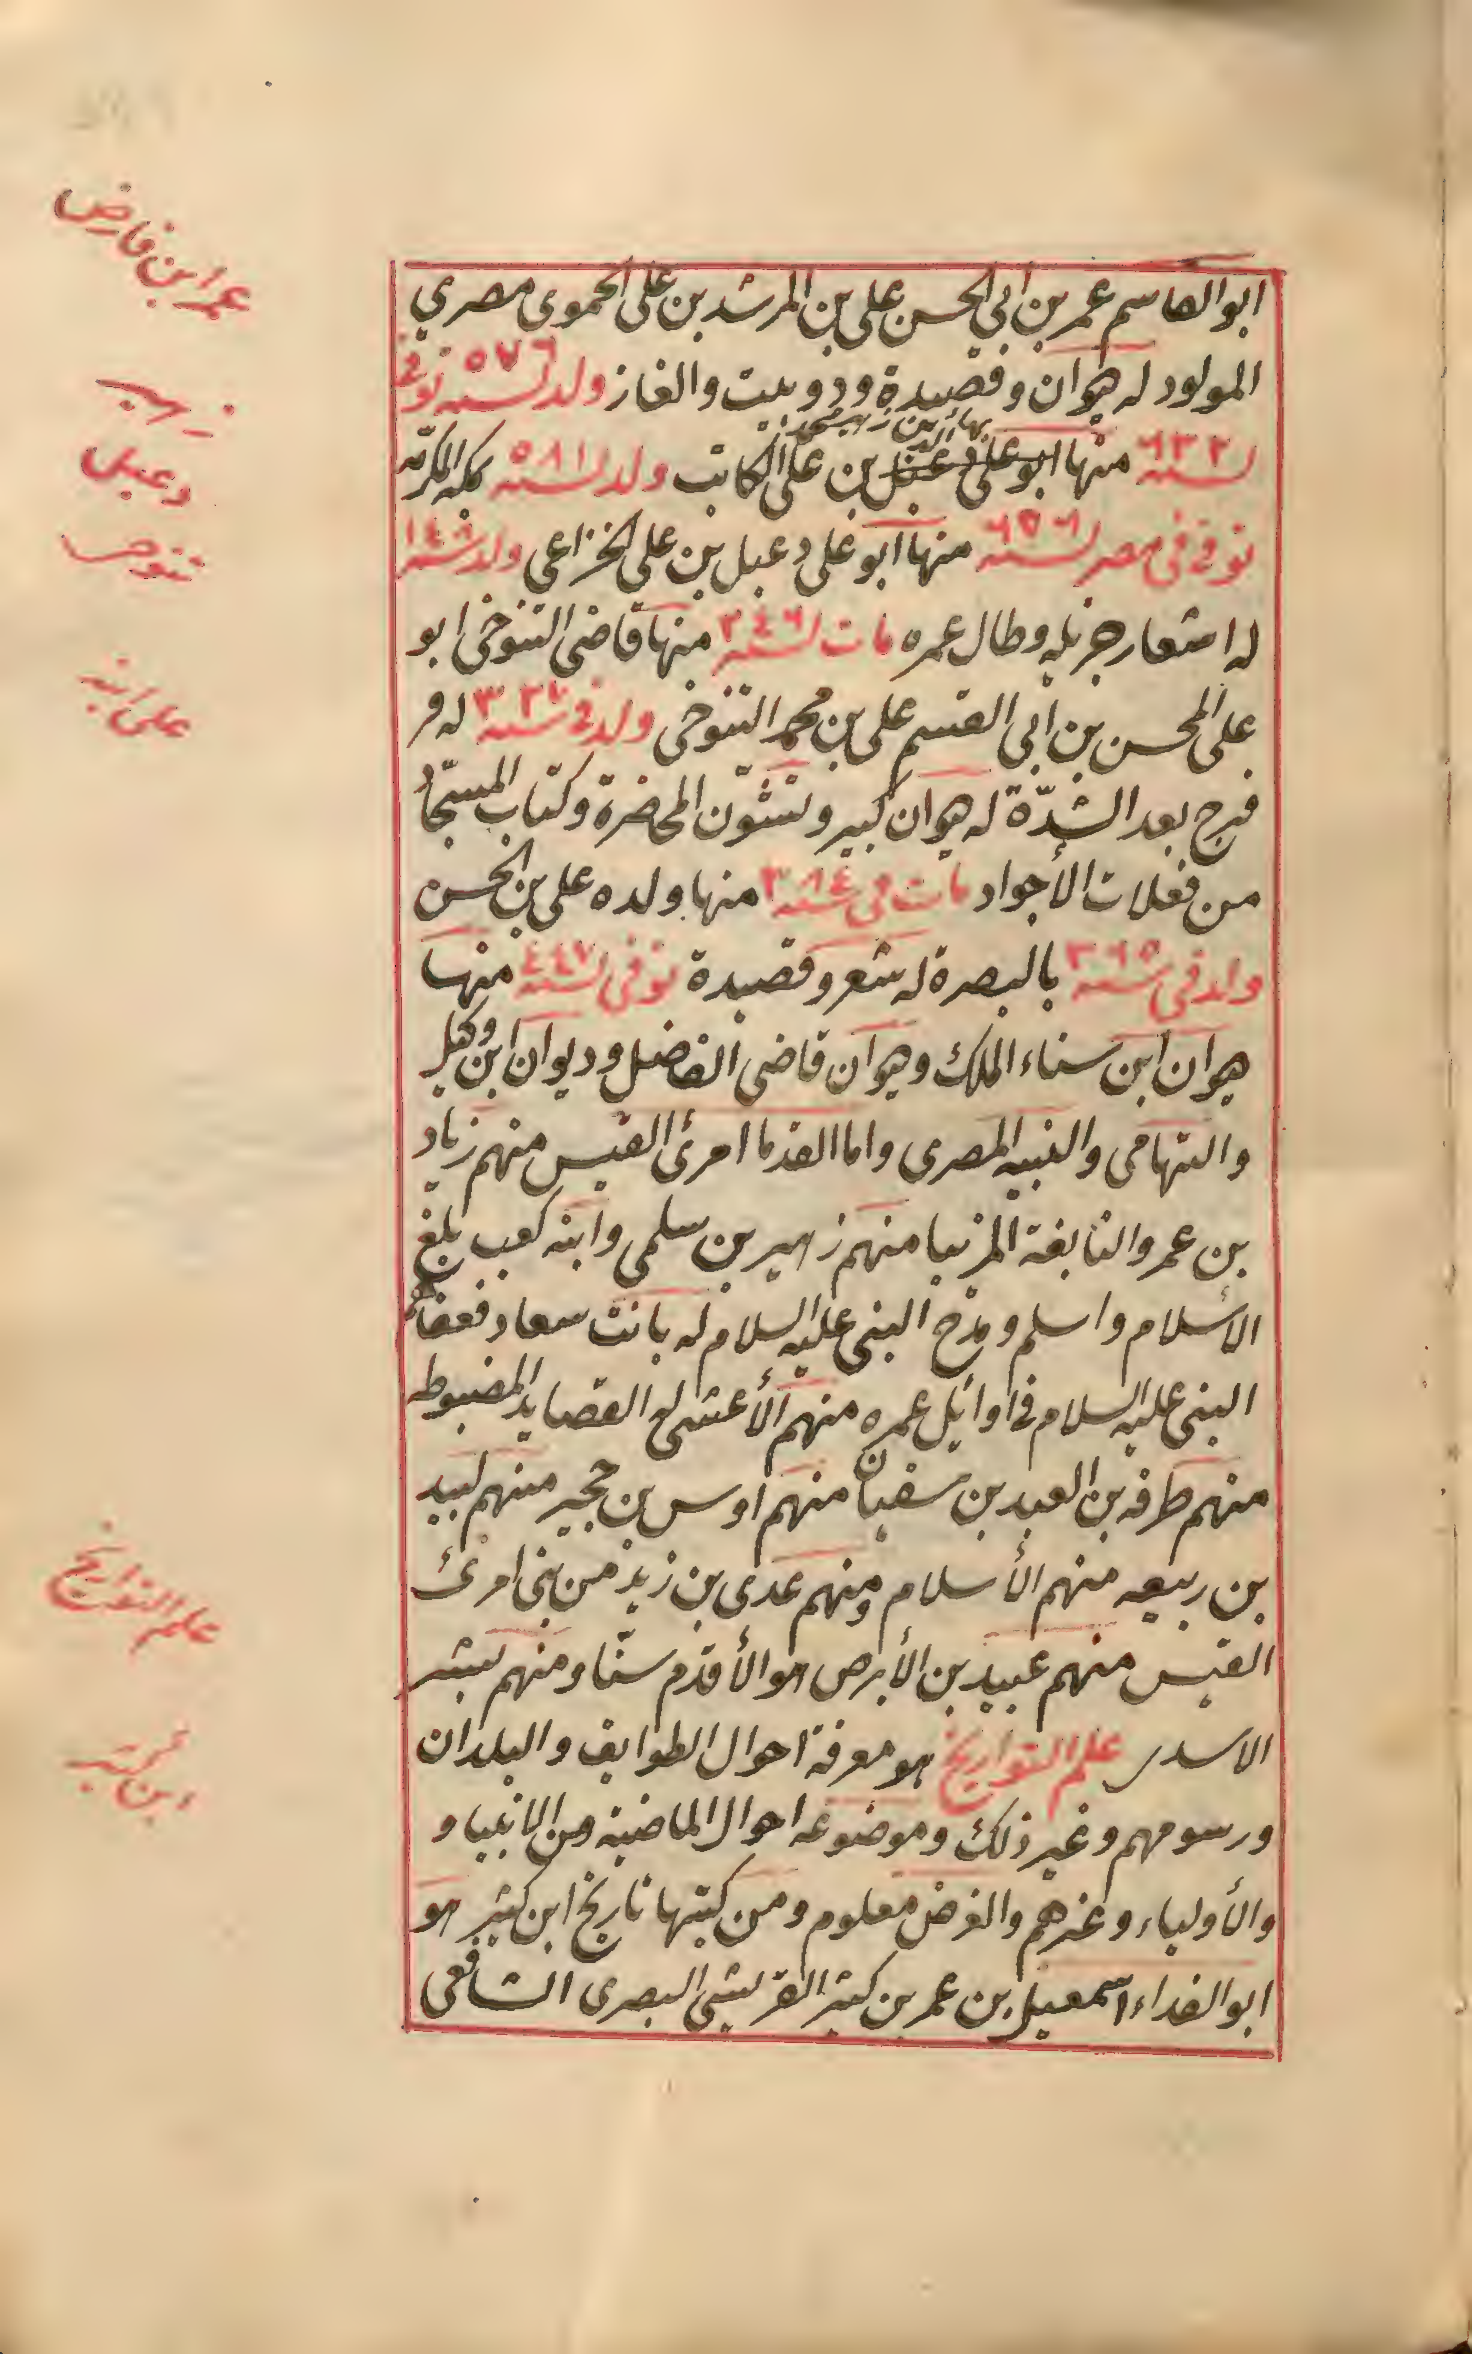 ابو القاسم عمر بن ابي الحسن علي بن المرشد بن علي الحموى مصري
المولود له ديوان وقصيدة ودو بيت والغاز ولد لسنه ٥٧٦ توفى
لسنه ٦٣٢ منها ابو على دعبل بن على الكاتب ولد لسنه ٥٨١ بمكه المكرمه
بهاء الدين زهير محمد
توفى فى مصر لسنه ٦٥٦ منها ابو على دعبل بن على الخزاعى ولد سنه ١٤٨
له اشعار جزيله وطال عمره مات لسنه ٢٤٦ منها قاضى التنوخى ابو
على المحسن بن ابى القسم على بن محمد التنوخى ولد فى سنه ٣٢٧ له
فرج بعد الشدّة له ديوان كبير ونشوان المحاضرة وكتاب المستجاد
من فعلات الأجواد مات فى سنه ٣٨٤ منها ولده على بن الحسن
ولد فى سنه ٣٦٥ بالبصرة له شعر وقصيدة توفى لسنه ٤٤٧ منها
ديوان ابن سناء الملك وديوان قاضى الفاضل وديوان ابن وكيل
والتهامى والنبيه المصرى واما القدما امرئ القيس منهم زياد
بن عمر والنابغة المزنيا منهم زهير بن سلمى وابنه كعب بلغ
الأسلام واسلم ومدح النبى عليه السلام له بانت سعاد فعفاهم
النبى عليه السلام فى اوائل عمره منهم الأعشى له القصايد المضبوطه
منهم طرفه بن العبد بن سفيان منهم اوس بن حجير منهم لبيد
بن ربيعه منهم الأسلام ومنهم عدى بن زيد من بنى امرئ
القيس منهم عبيد بن الأبرص هو الأقدم سنّا ومنهم بشر
الاسدى علم التواريخ هو معرفة احوال الطوايف والبلدان
ورسومهم وغير ذلك وموضوعه احوال الماضية من الانبيا و
والأولياء وغيرهم والغرض معلوم ومن كتبها تاريخ ابن كثير هو
ابو الفداء اسمعيل بن عمر بن كثير القريشى البصرى الشافعى
عمر ابن فارض
زهير
دعبل
تنوخى
على ابنه
علم التواريخ
ابن كثير